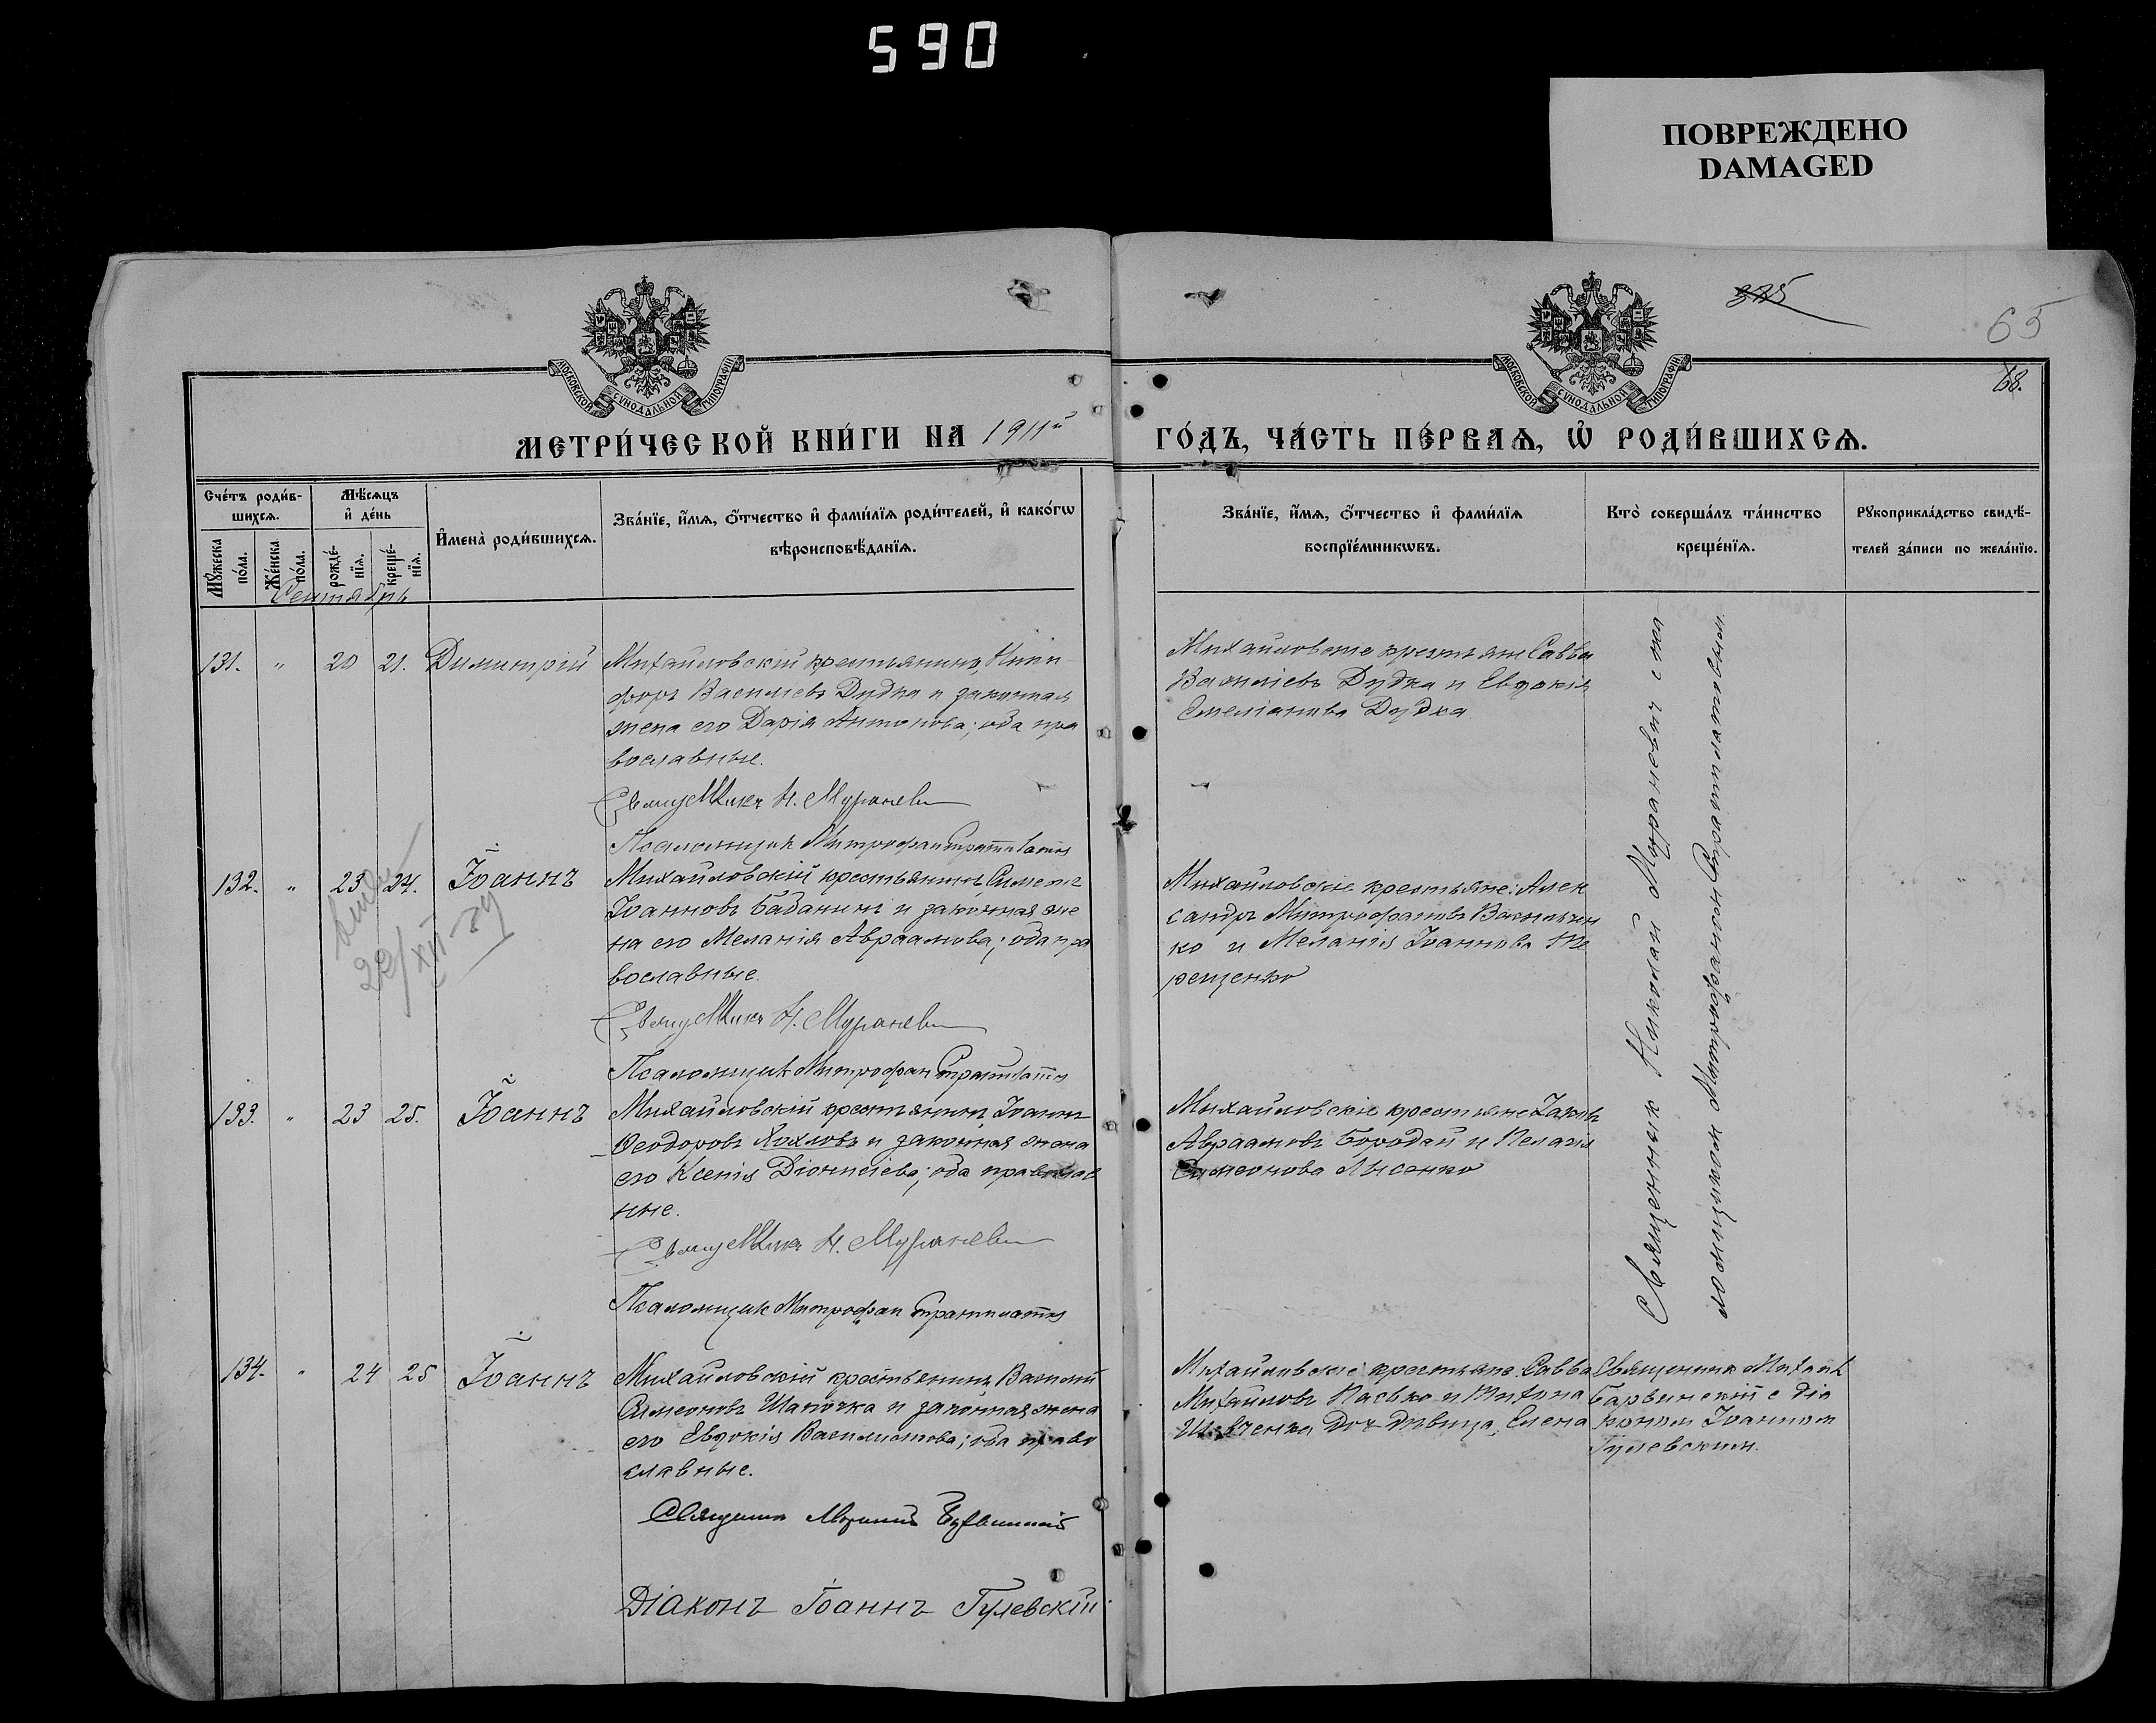 590
ПОВРЕЖДЕНО
DAMAGED
325
65
68.
МОСКОВСКОЙ СУНОДАЛЬНОЙ ТИПОГРАФІИ
МОСКОВСКОЙ СУНОДАЛЬНОЙ ТИПОГРАФІИ
МЕТРИ́ЧЕСКОЙ КНИ́ГИ НА 1911й ГО́ДЪ, ЧА́СТЬ ПЕ́РВАѦ, Ѡ҆ РОДИ́ВШИХСѦ.
Сче́тъ роди́в-
шихсѧ.
Мꙋ́жеска
по́ла.
Же́нска
по́ла.
Мѣ́сѧцъ
и҆ де́нь
рожде́-
нїѧ.
креще́-
нїѧ.
И҆мена̀ роди́вшихсѧ.
Зва́нїе, и҆́мѧ, ѻ҆́тчество и҆ фами́лїѧ роди́телей, и҆ како́гѡ
вѣроисповѣ́данїѧ.
Зва́нїе, и҆́мѧ, ѻ҆́тчество и҆ фами́лїѧ
воспрїе́мникѡвъ.
Кто̀ соверша́лъ та́инство
креще́нїѧ.
Рꙋкоприкла́дство свидѣ́-
телей за́писи по жела́нїю.
Сентябрь
131. " 20 21. Димитрій
Михайловскій крестьянинъ Ники-
форъ Василіевъ Дудка и законная
жена его Дарія Антонова; оба пра
вославные.
Священникъ Н. Мураневич
Псаломщикъ Митрофан Стратилатов
Михайловскіе крестьяне Савва
Василіевъ Дудка и Евдокія
Емеліанова Дудка
132. " 23 24. Іоаннъ
22/XII
Михайловскій крестьянинъ Симеонъ
Іоанновъ Бабанинъ и законная же
на его Меланія Авраамова; оба пра
вославные.
Священникъ Н. Мураневич
Псаломщикъ Митрофан Стратилатов
Михайловскіе крестьяне: Алек
сандръ Митрофановъ Васильчен
ко и Меланія Іоаннова Те
рещенко
133. " 23 25. Іоаннъ
Михайловскій крестьянинъ Іоаннъ
Ѳеодоровъ Хохловъ и законная жена
его Ксенія Діонисіева; оба православ
ные.
Священникъ Н. Мураневич
Псаломщикъ Митрофан Стратилатов
Михайловскіе крестьяне Іаковъ
Авраамовъ Бородай и Пелагія
Симеонова Лысенко
Священник Николай Мураневич с пса
ломщиком Митрофаном Стратилатовым.
134. " 24 25 Іоаннъ
Михайловскій крестьянинъ Василій
Симеоновъ Шапочка и законная жена
его Евдокія; оба право
славные.
Священник Михаил Барвинский
Діаконъ Іоаннъ Гулевскій
Михайловскіе крестьяне Савва
Михайловъ Пасько и
Шевченка Дочь девица, Елена
Священник Михаил
Барвинский с діа
коном Іоанном
Гулевским.